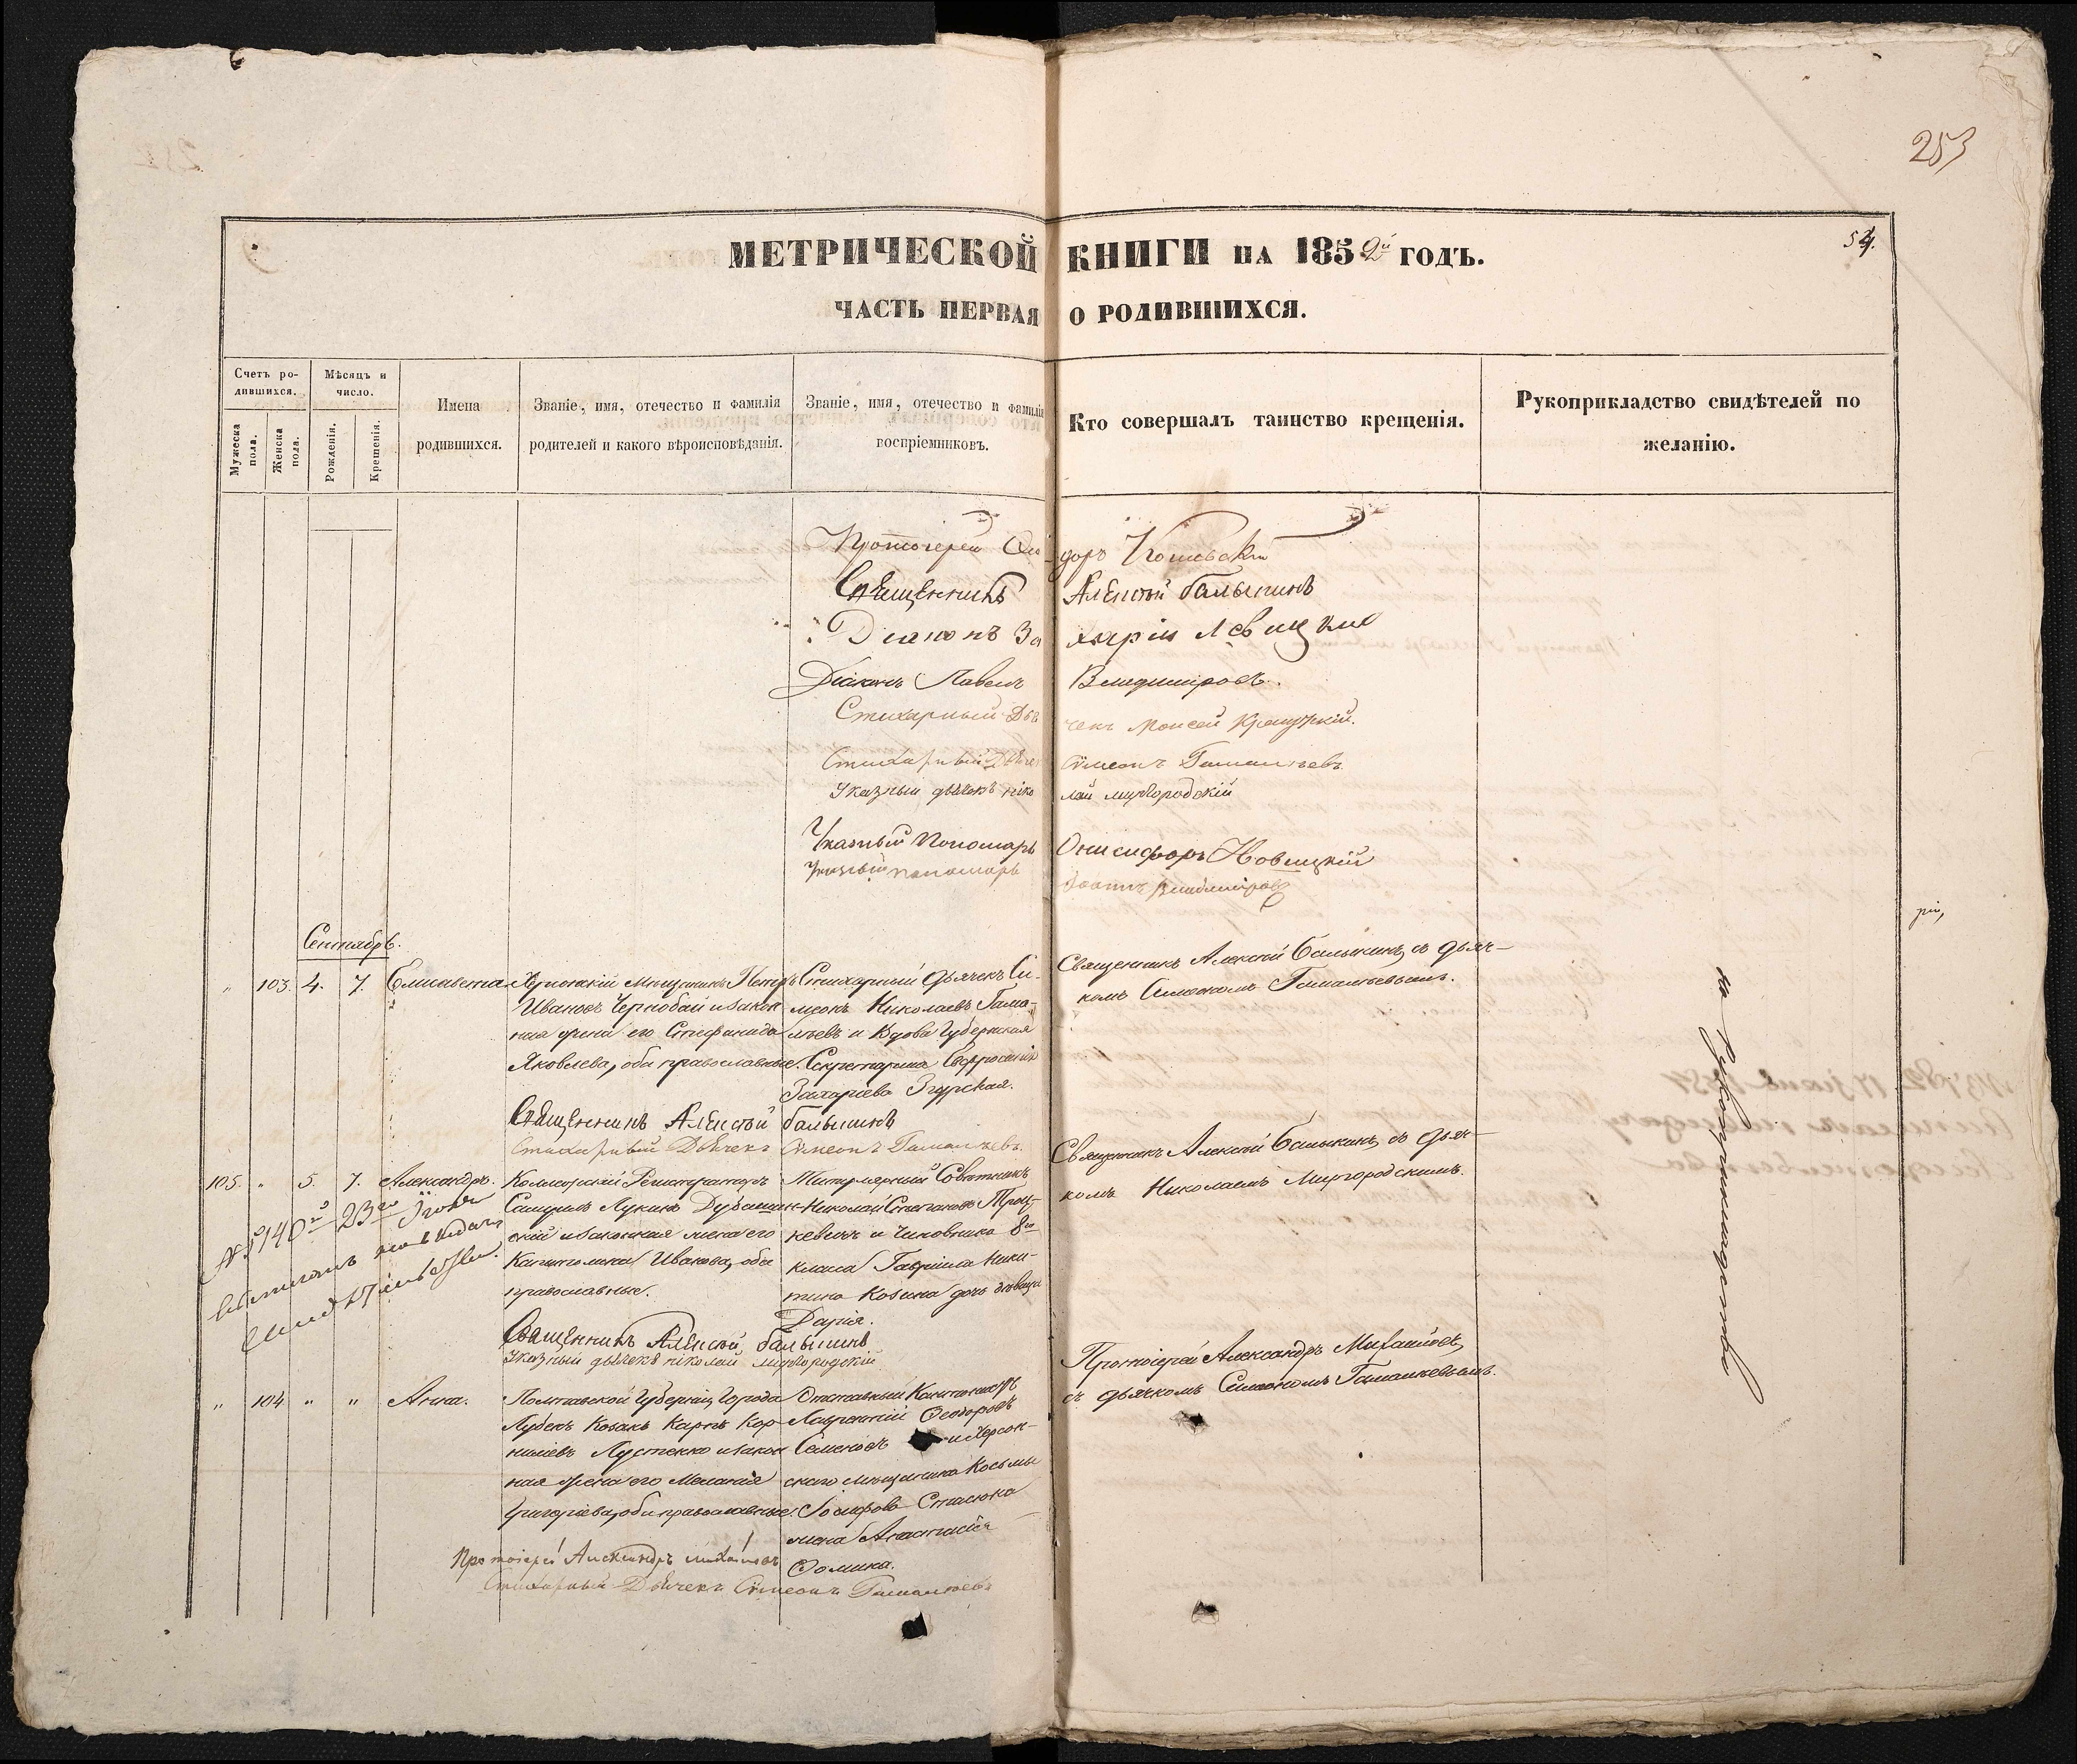 253
МЕТРИЧЕСКОЙ КНИГИ НА 1852й ГОДЪ.
54.
ЧАСТЬ ПЕРВАЯ О РОДИВШИХСЯ.
Счетъ родившихся.
Мужеска пола.
Женска пола.
Мѣсяцъ и число.
Рожденія.
Крещенія.
Имена родившихся.
Званіе, имя, отечество и фамилія родителей и какого вѣроисповѣданія.
Званіе, имя, отечество и фамилія воспріемниковъ.
Кто совершалъ таинство крещенія.
Рукоприкладство свидѣтелей по желанію.
Протоіерей
Священникъ Алексій Балыкинъ
Діаконъ Захарій Левицкій
Діаконъ Павелъ Владиміровъ.
Стихарный Дьячекъ Моисей
Стихарный Дьячекъ Сѵмеонъ Гамалѣевъ
Указный дьячекъ Николай Миргородскій
Указный Пономарь Онисифоръ Новицкій
Указный пономарь Владиміровъ
рію,
Сентябрь.
„ 103. 4. 7. Елисавета
Херсонскій Мѣщанинъ Петръ
Ивановъ Чернобай и закон
ная жена его Стефанида
Яковлева, оба православные.
Стихарный Дьячекъ Си-
меонъ Николаевъ Гама-
лѣевъ и Вдова Губернская
Секретарша Евфросинія
Захаріева Згурская.
Священникъ Алексій Балыкинъ съ дьяч-
комъ Симеономъ Гамалѣевымъ.
Священникъ Алексій Балыкинъ
Стихарный Дьячекъ Сѵмеонъ Гамалѣевъ
105. „ 5. 7. Александръ.
Коллежскій Регистраторъ
Самуилъ Лукинъ
скій и законная жена его
Капитолина Иванова, оба
православные.
Титулярный Совѣтникъ
Николай Степановъ Троц-
кевичъ и Чиновника 8го
класса Гавріила Ники-
тина Козина дочь дѣвица
Дарія.
Священникъ Алексій Балыкинъ съ дьяч-
комъ Николаемъ Миргородскимъ.
Священникъ Алексій Балыкинъ
Указный дьячекъ Николай Миргородскій
„ 104 „ „ Анна.
Полтавской Губерніи Города
Лубенъ Козакъ Карпъ Кор
ниліевъ Пустенко и закон
ная жена его Меланія
Григоріева, оба православные.
Отставный Кантонистъ
Лаврентій Ѳеодоровъ
Семеновъ и Херсон-
скаго мѣщанина Косьмы
Іосифова Стасюка
жена Анастасія
Ѳомина.
Протоіерей Александръ Михайловъ,
съ дьячкомъ Симеономъ Гамалѣевымъ.
Протоіерей Александръ Михайловъ
Стихарный Дьячекъ Сѵмеонъ Гамалѣевъ